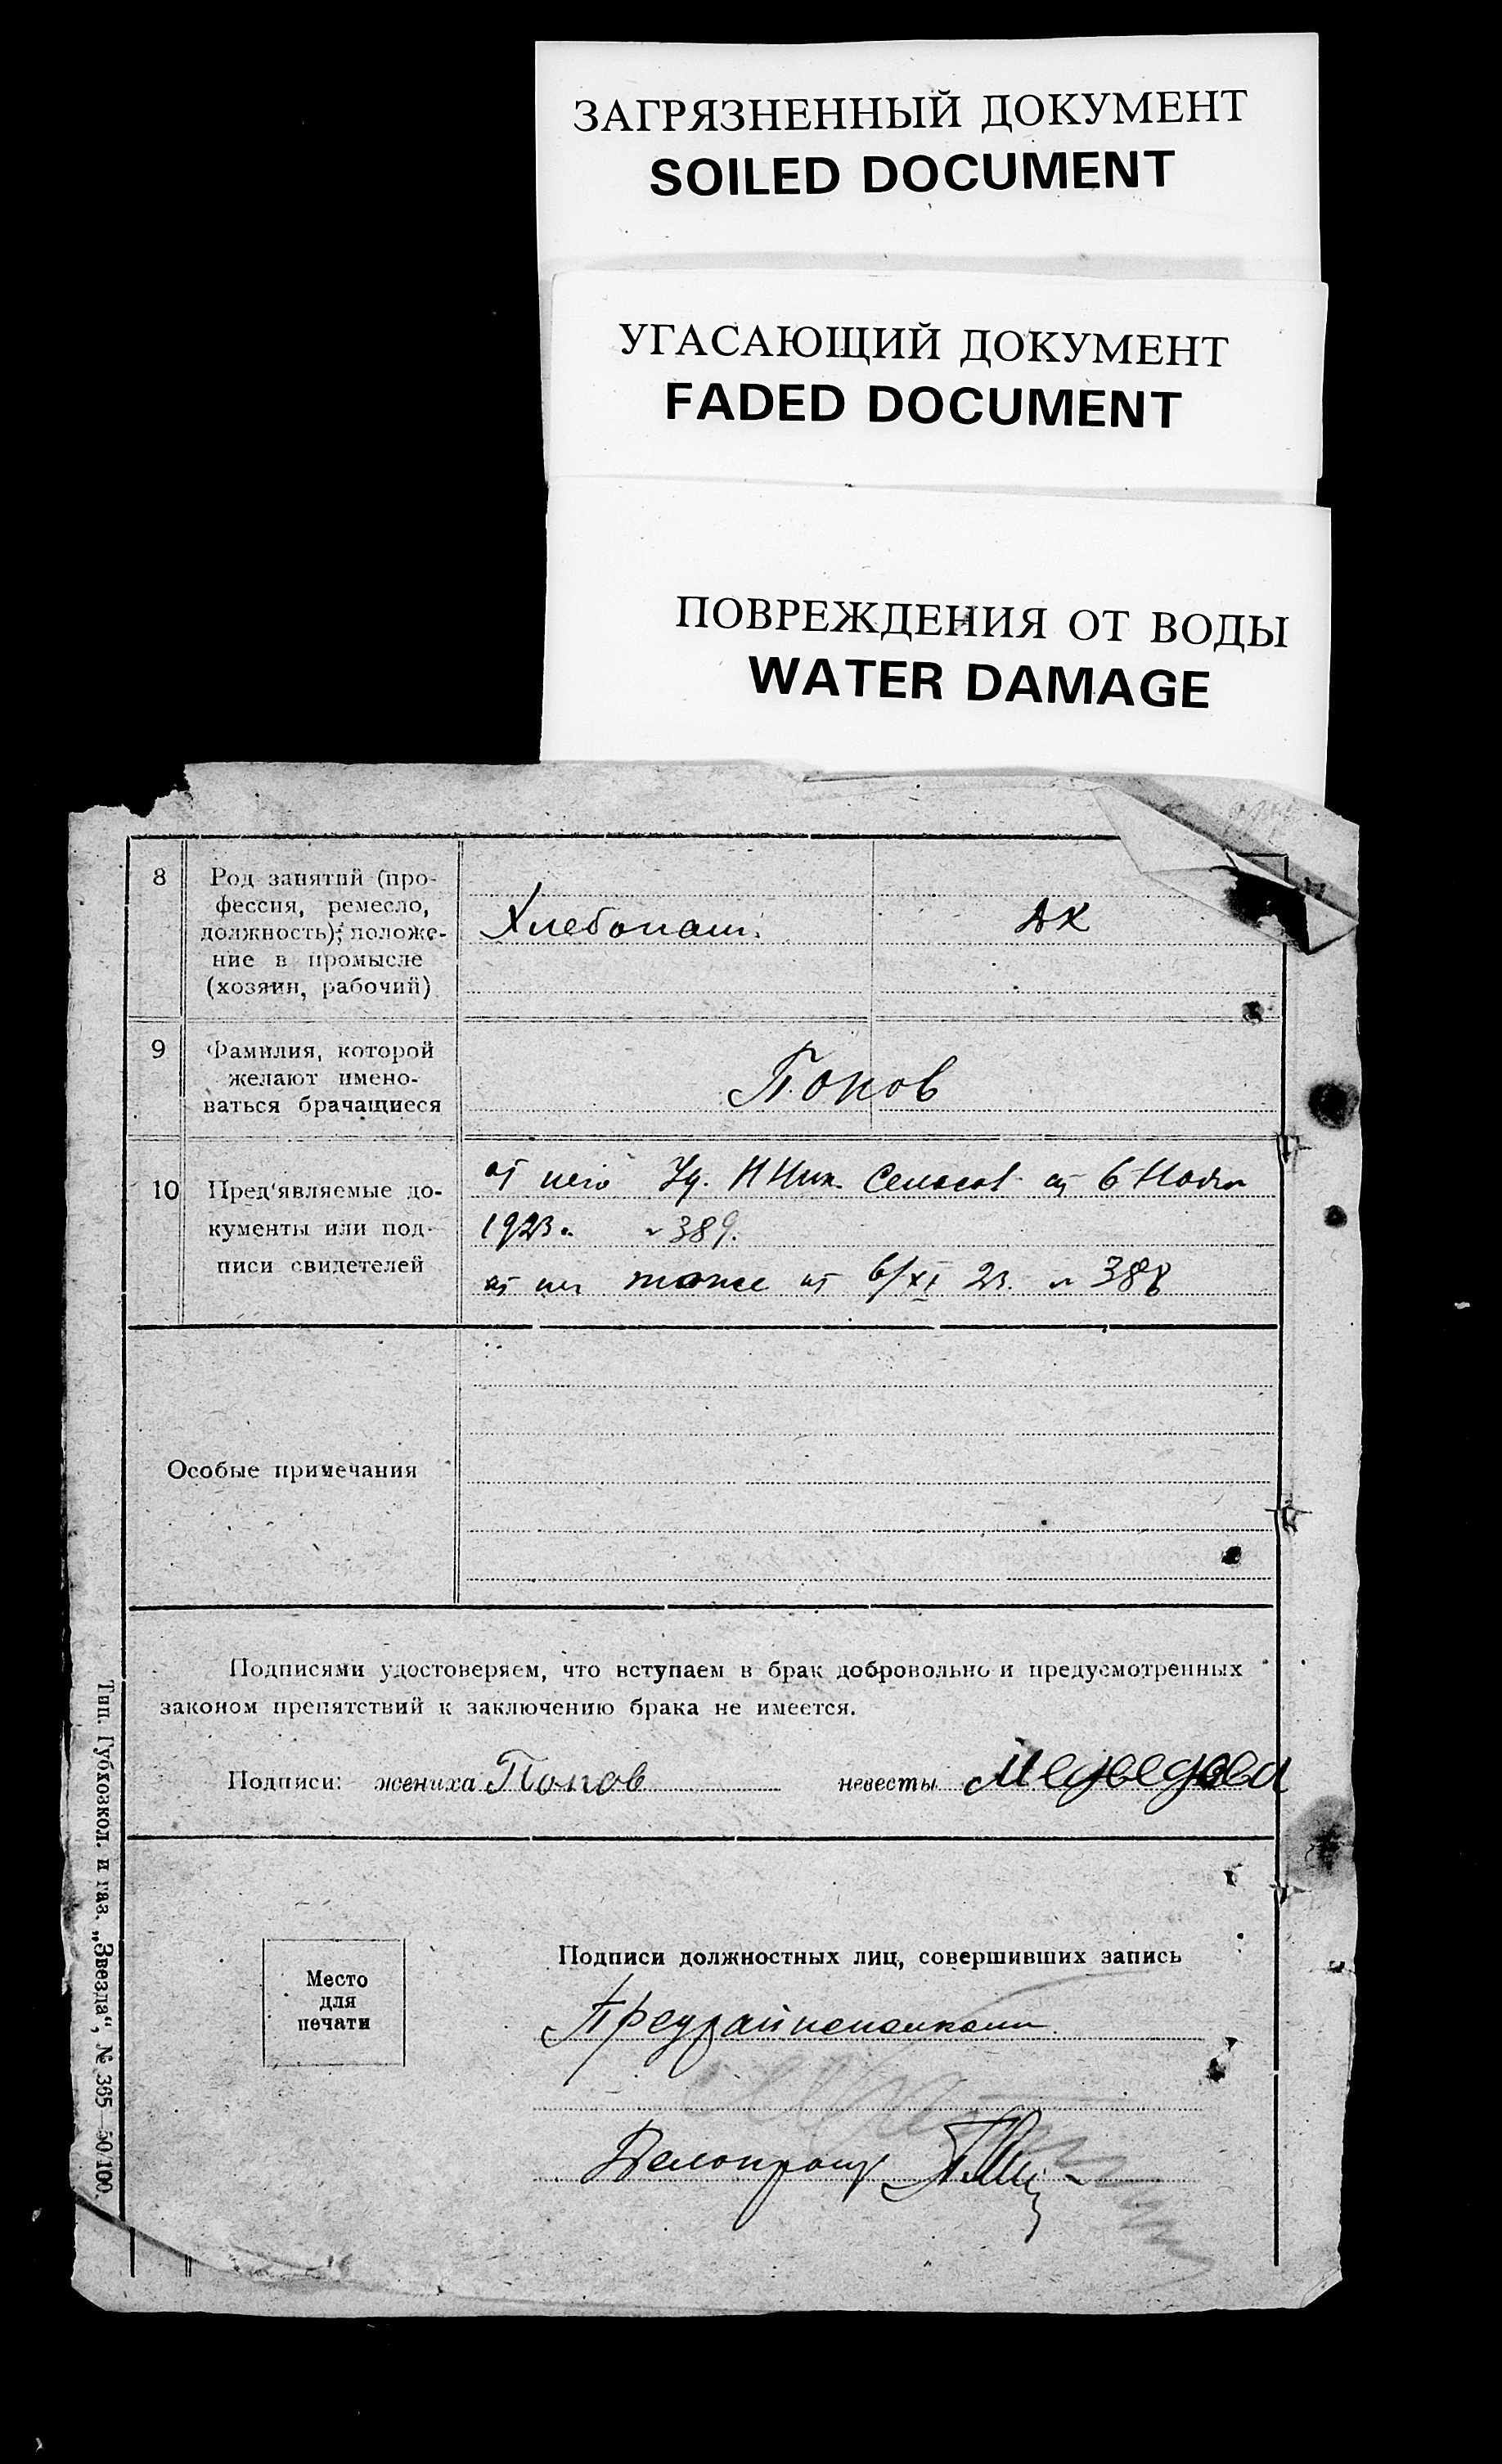 ЗАГРЯЗНЕННЫЙ ДОКУМЕНТ
SOILED DOCUMENT
УГАСАЮЩИЙ ДОКУМЕНТ
FADED DOCUMENT
ПОВРЕЖДЕНИЯ ОТ ВОДЫ
WATER DAMAGE
8
Род занятий (про-
фессия, ремесло,
должность); положе-
ние в промысле
(хозяин, рабочий)
Хлебопаш.
ДХ
9
Фамилия, которой
желают имено-
ваться брачащиеся
Попов
10
Пред'являемые до-
кументы или под-
писи свидетелей
от него Уд. Н Ник. от 6 Ноября
1923 г. № 389.
от не тоже от 6/XI 23. № 388
Особые примечания
Подписями удостоверяем, что вступаем в брак добровольно и предусмотренных
законом препятствий к заключению брака не имеется.
Подписи: жениха Попов невесты Медведева
Место
для
печати
Подписи должностных лиц, совершивших запись
Предрайисполкома
Делопроизв
Тип. Губхозкол. и газ. „Звезда“, № 365—50/100.